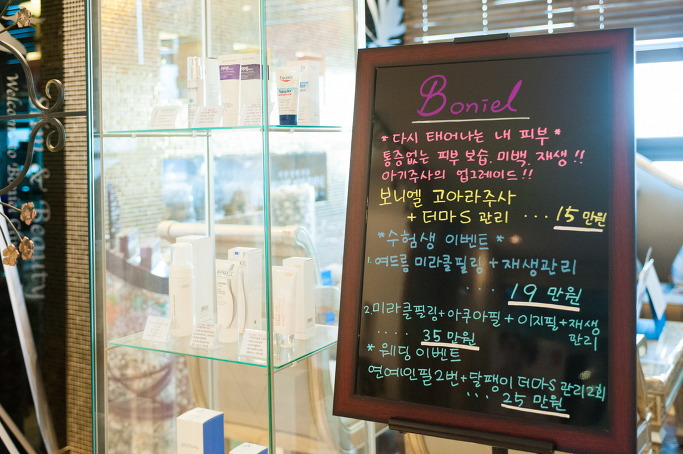 Welcome to
& Beauty
Boniel
* 다시 태어나는 내 피부 *
통증없는 피부 보습, 미백, 재생!!
아기주사의 업그레이드!!
보니엘 고아라주사
+ 더마S 관리 ... 15만원
*수험생 이벤트*
1. 여드름 미라클필링 + 재생관리
... 19만원
2. 미라클필링+아쿠아필+이지필+재생
관리
.... 35만원
* 웨딩 이벤트
연예인필2번+달팽이 더마S 관리2회
... 25만원